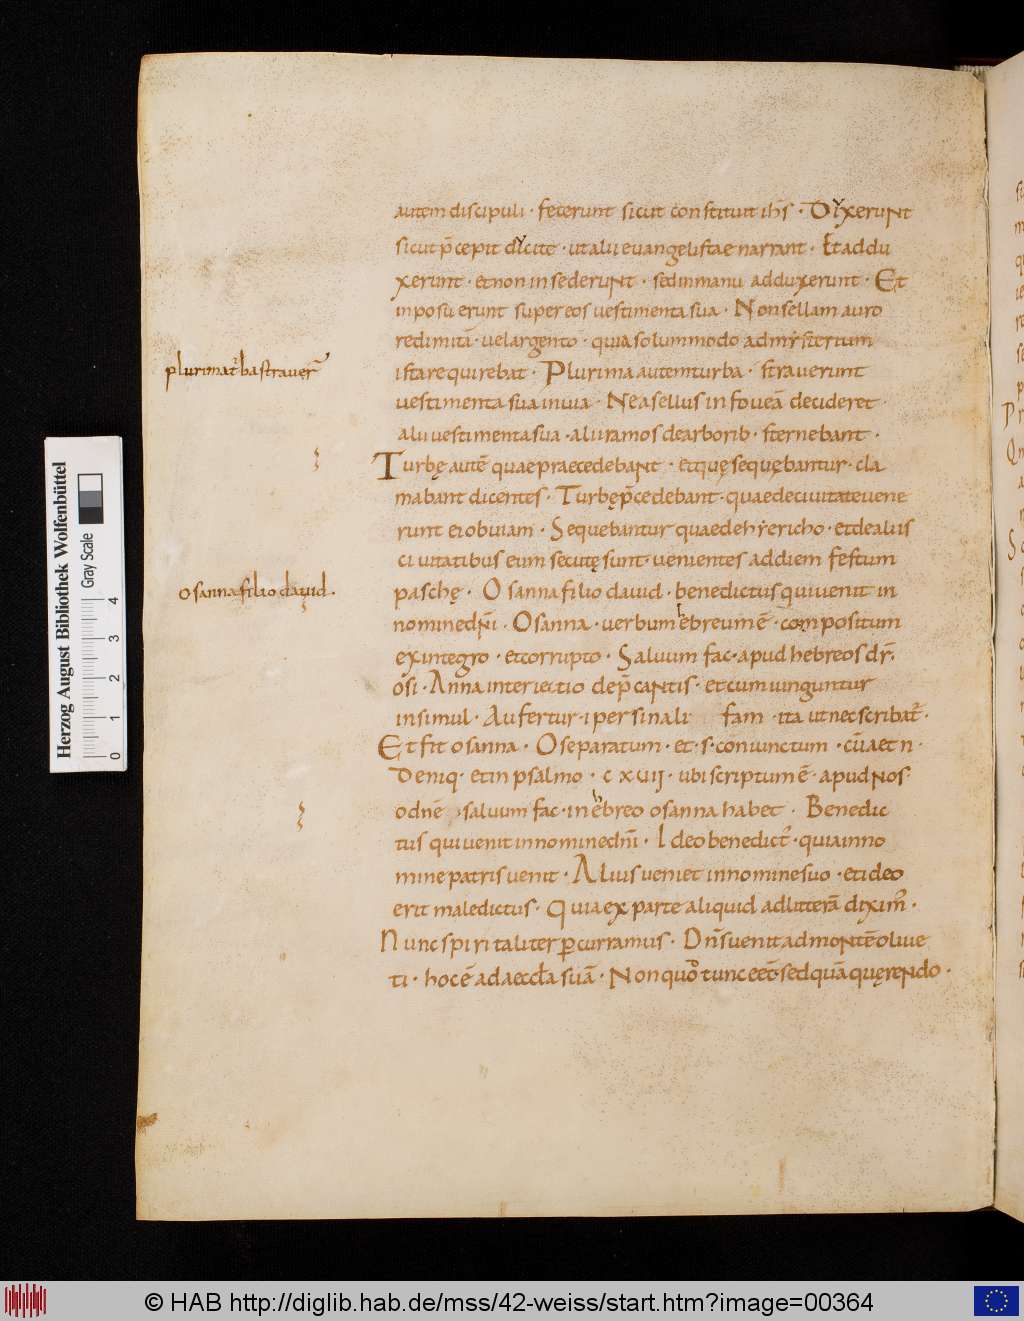 autem discipuli · fecerunt sicut constituit ihs̄ · Dixerunt
sicut p̄cepit dicite · ut alii euangelistae narrant · Et addu
xerunt · et non insederunt · sed in manu adduxerunt · Et
inposuerunt super eos uestimenta sua · Non sellam auro
redimitā · uel argento · quia solummodo ad mysterium
plurima t̄ba strauer̄
ista requirebat · Plurima autem turba · strauerunt
uestimenta sua in uia · Ne asellus in foueā decideret ·
alii uestimenta sua · alii ramos de arborib · sternebant ·
Turbę autē quae praecedebant · et quę sequębantur · cla
mabant dicentes · Turbę p̄cedebant · quae de ciuitate uene
runt ei obuiam · Sequebantur quae de hyericho · et de aliis
ciuitatibus eum secutę sunt · uenientes ad diem festum
osanna filio dauid ·
paschę · Osanna filio dauid · benedictus qui uenit in
nomine dn̄i · Osanna · uerbum hebreum ē · compositum
ex integro · et corrupto · Saluum fac · apud hebreos dr̄ ·
osi · Anna interiectio dep̄cantis · et cum iunguntur
insimul · Aufertur · i per sinali fam · ita ut nec scribat᷒ ·
Et fit osanna · O separatum · et · s · coniunctum · cū a et n ·
Deniq · et in psalmo · cxuii · ubi scriptum ē · apud nos ·
o dnē saluum fac · in hebreo osanna habet · Benedic
tus qui uenit in nomine dn̄i · Ideo benedict᷒ · quia in no
mine patris uenit · Alius ueniet in nomine suo · et ideo
erit maledictus · Quia ex parte aliquid ad litterā diximꝰ ·
Nunc spiritaliter p̄curramus · Dn̄s uenit ad montē oliue
ti · hoc ē ad aeccl̄a suā · Non quo tunc eēt · sed quā quęrendo ·
Herzog August Bibliothek Wolfenbüttel
Gray Scale
0 1 2 3 4
© HAB http://diglib.hab.de/mss/42-weiss/start.htm?image=00364